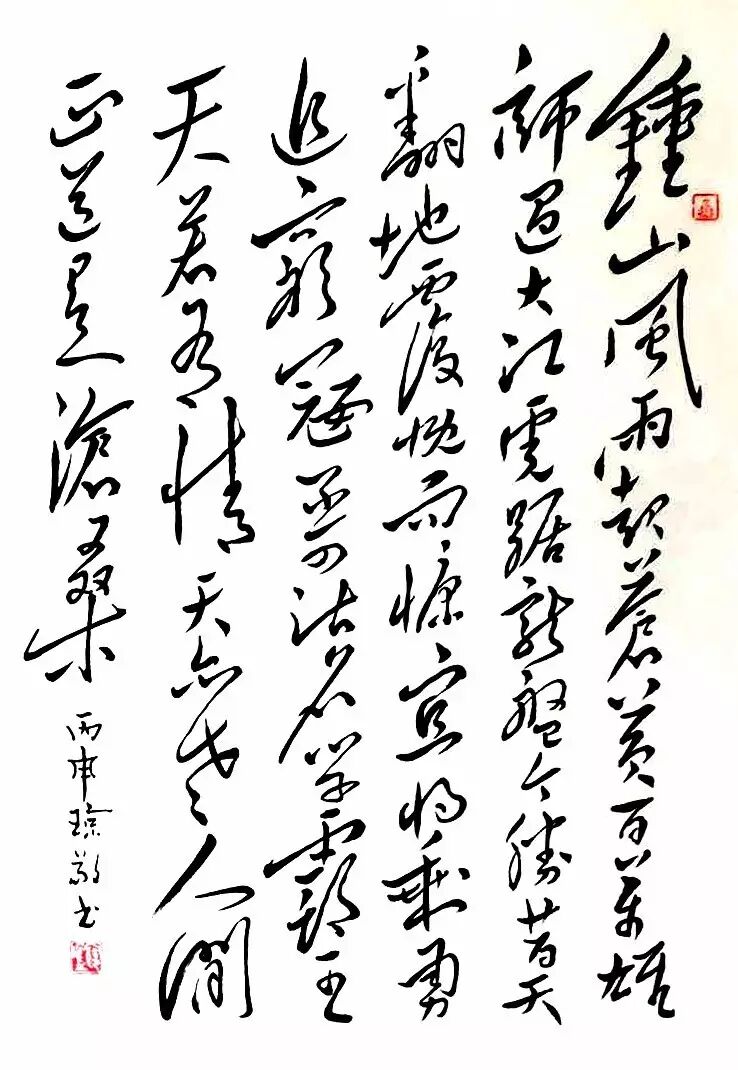 鍾山風雨起蒼黃百萬雄
師過大江虎踞龍盤今勝昔天
翻地覆慨而慷宜將剩勇
追窮寇不可沽名學霸王
天若有情天亦老人間
正道是滄桑
丙申琼敬书